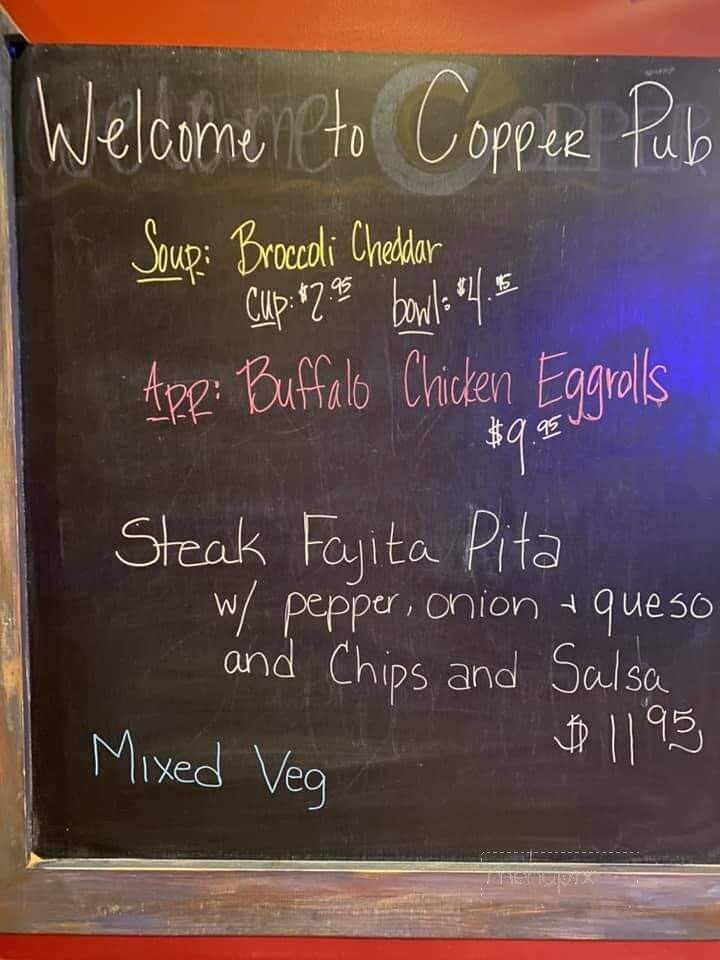 Welcome to Copper Pub
Soup: Broccoli Cheddar
cup: $2.95 bowl: $4.95
App: Buffalo Chicken Eggrolls
$9.95
Steak Fajita Pita
w/ pepper, onion + queso
and Chips and Salsa
$11.95
Mixed Veg
menupix